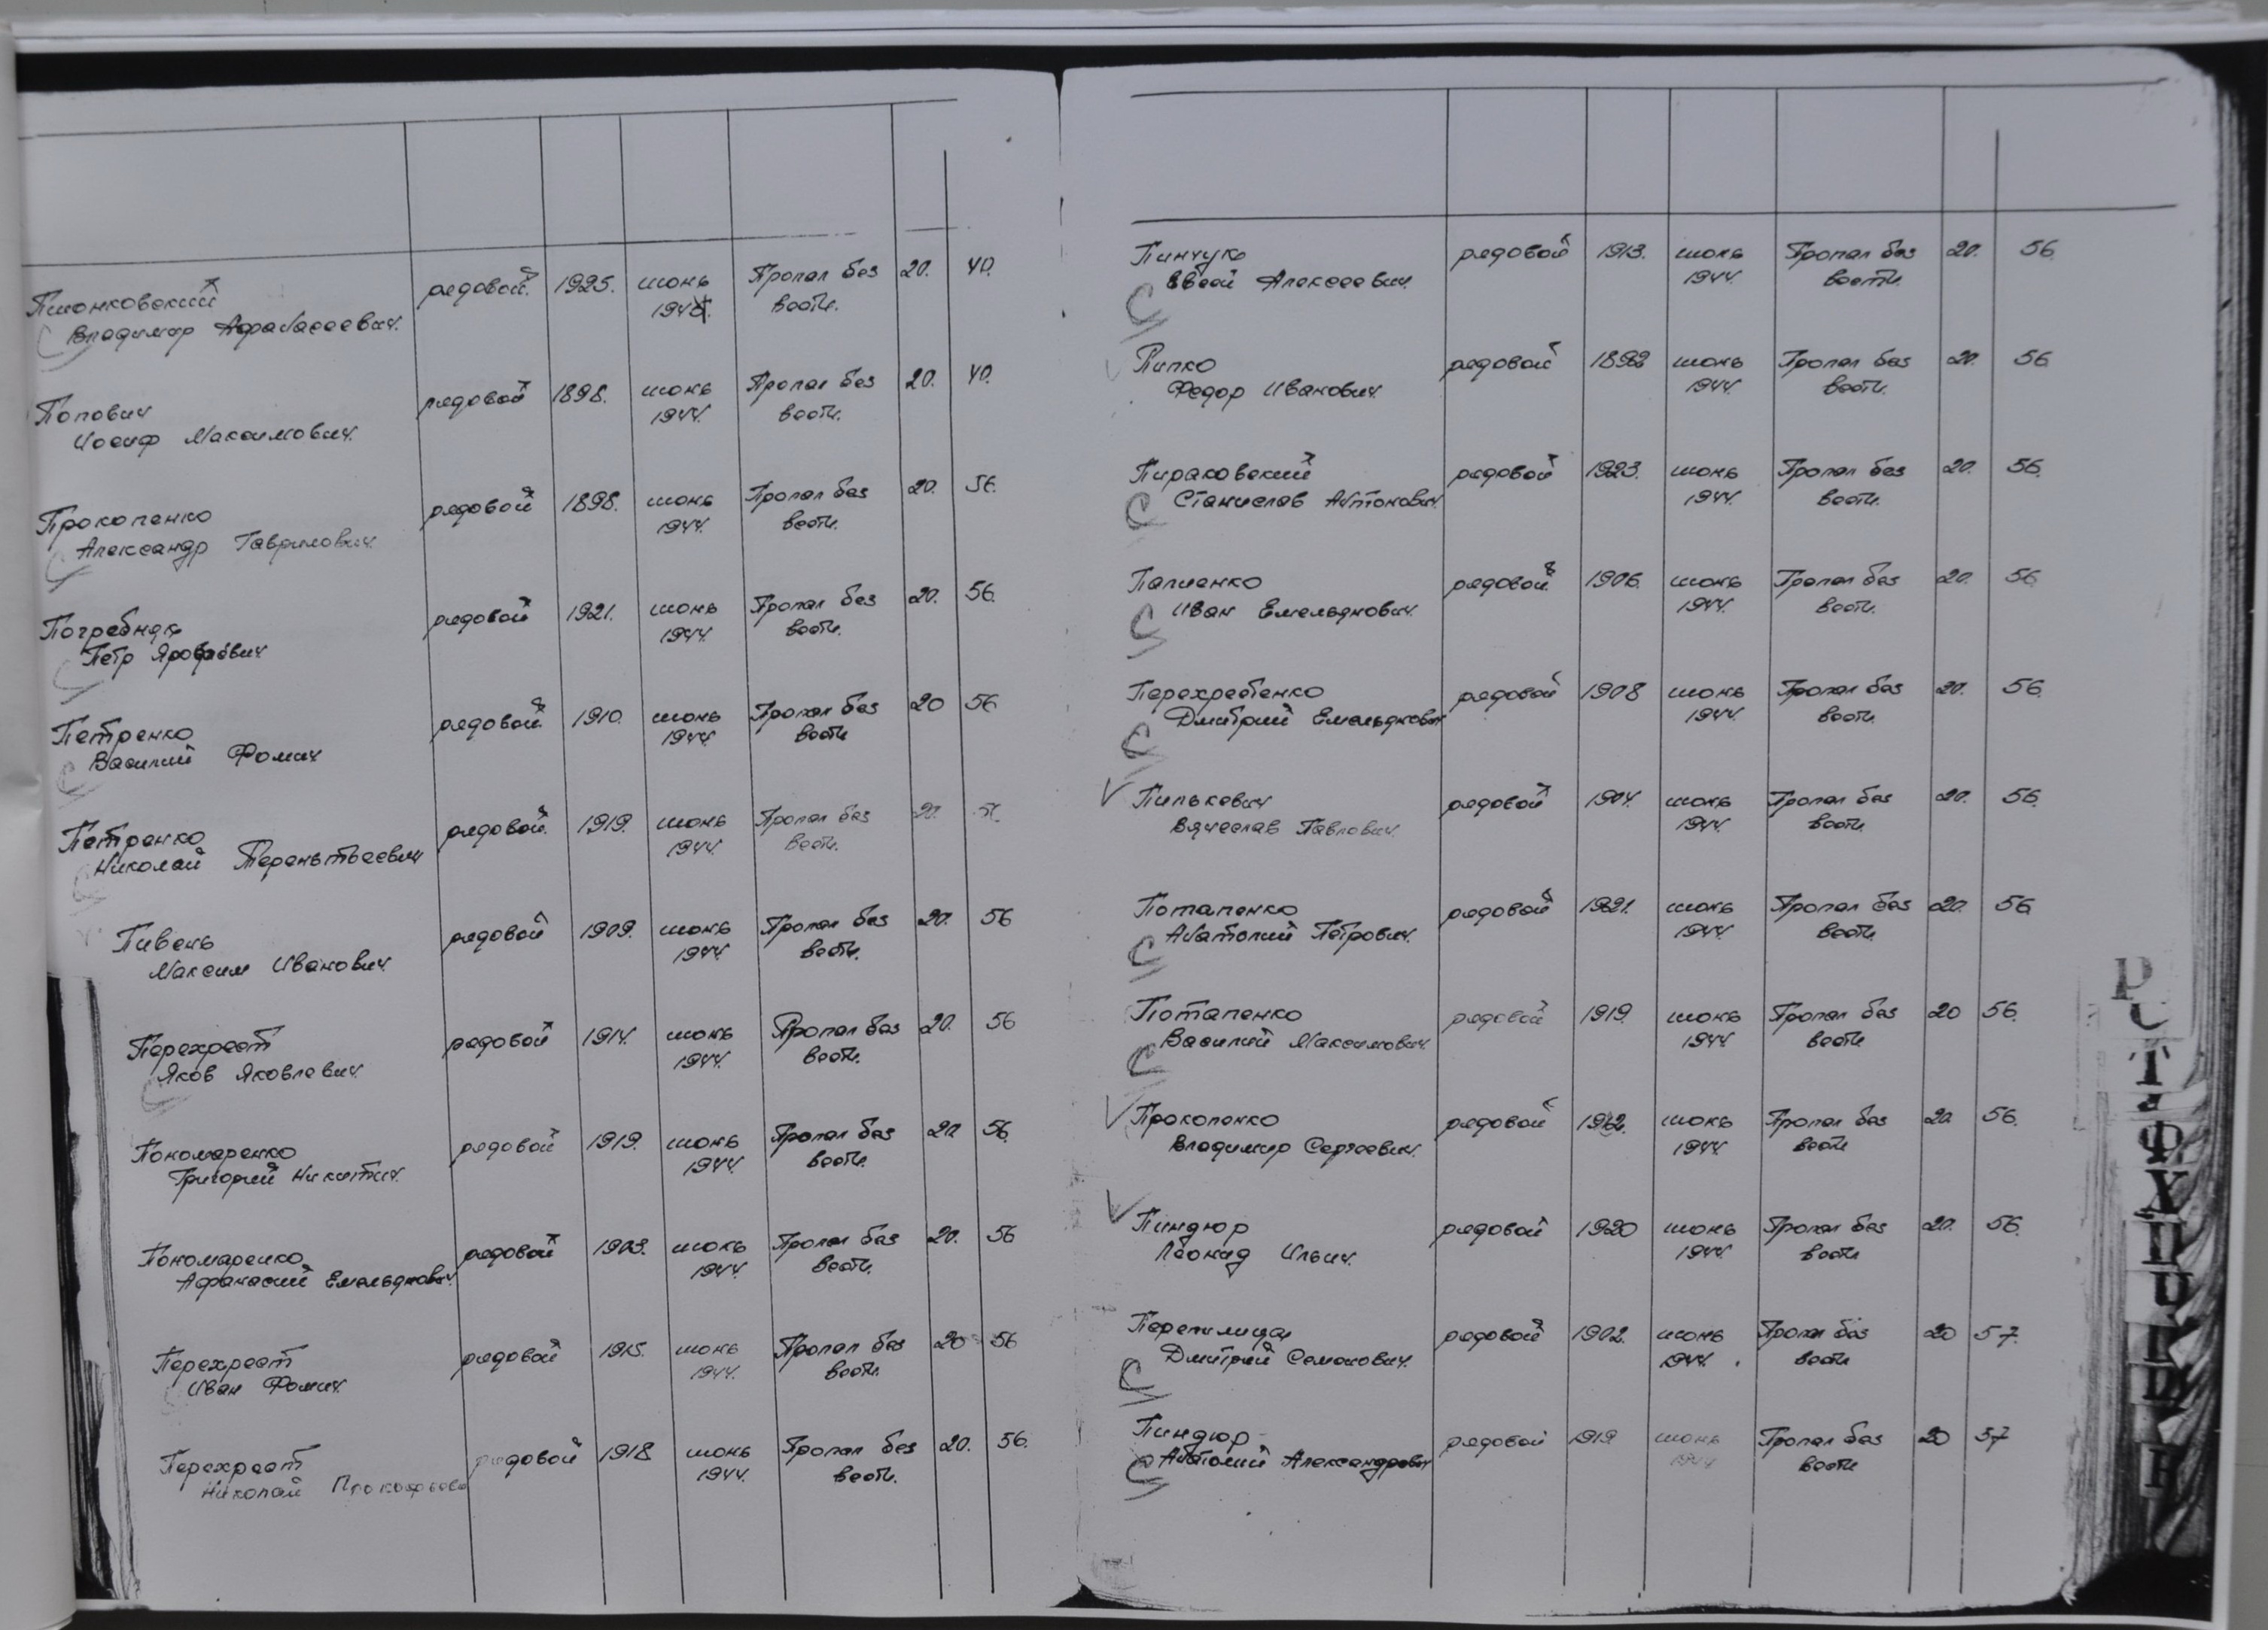 Пионковский рядовой. 1925. июнь Пропал без 20. 40.
Владимир Афанасеевич. 1944. вести.
Попович рядовой 1898. июнь Пропал без 20. 40.
Иосиф Максимович. 1944. вести.
Прокопенко рядовой 1898. июнь Пропал без 20. 56.
Александр Гаврилович. 1944. вести.
Погребняк рядовой 1921. июнь Пропал без 20. 56.
Петр 1944. вести.
Петренко рядовой. 1910. июнь Пропал без 20 56
Василий Фомич 1944. вести
Петренко рядовой. 1919. июнь Пропал без 20. 56.
Николай Терентьеевич 1944. вести.
Пивень рядовой 1909. июнь Пропал без 20. 56
Максим Иванович. 1944. вести.
Перехрест рядовой 1914. июнь Пропал без 20. 56
Яков Яковлевич. 1944. вести.
Пономаренко рядовой 1919. июнь Пропал без 20. 56.
Григорий Никитич. 1944. вести.
Пономаренко рядовой 1903. июнь Пропал без 20. 56
Афанасий Емельянович. 1944. вести.
Перехрест рядовой 1915. июнь Пропал без 20 56
Иван Фомич. 1944. вести.
Перехрест рядовой 1918 июнь Пропал без 20. 56.
Николай Прокофьеви 1944. вести.
Пинчук рядовой 1913. июнь Пропал без 20. 56
Евсей Алексеевич. 1944. вести.
Пипко рядовой 1892 июнь Пропал без 20. 56
Федор Иванович. 1944. вести.
Пираковский рядовой 1923. июнь Пропал без 20. 56.
Станислав Антонович. 1944. вести.
Палиенко рядовой. 1906. июнь Пропал без 20. 56
Иван Емельянович. 1944. вести.
Перехребенко рядовой 1908 июнь Пропал без 20. 56.
Дмитрий Емельянович 1944. вести.
Пилькевич рядовой 1904. июнь Пропал без 20. 56.
Вячеслав Павлович. 1944. вести.
Потапенко рядовой 1921. июнь Пропал без 20. 56
Анатолий Петрович. 1944. вести.
Потапенко рядовой 1919. июнь Пропал без 20 56.
Василий Максимович. 1944. вести
Прокопенко рядовой июнь Пропал без 20. 56.
Владимир Сергеевич. 1944. вести
Пиндюр рядовой 1920 июнь Пропал без 20. 56.
Леонид Ильич. 1944. вести
рядовой 1902. июнь Пропал без 20 57.
Дмитрий Семенович. 1944. вести
Пиндюр рядовой 1919 июнь Пропал без 20 57
Анатолий Александрович 1944 вести
Р
С
Т
У
Ф
Х
Ц